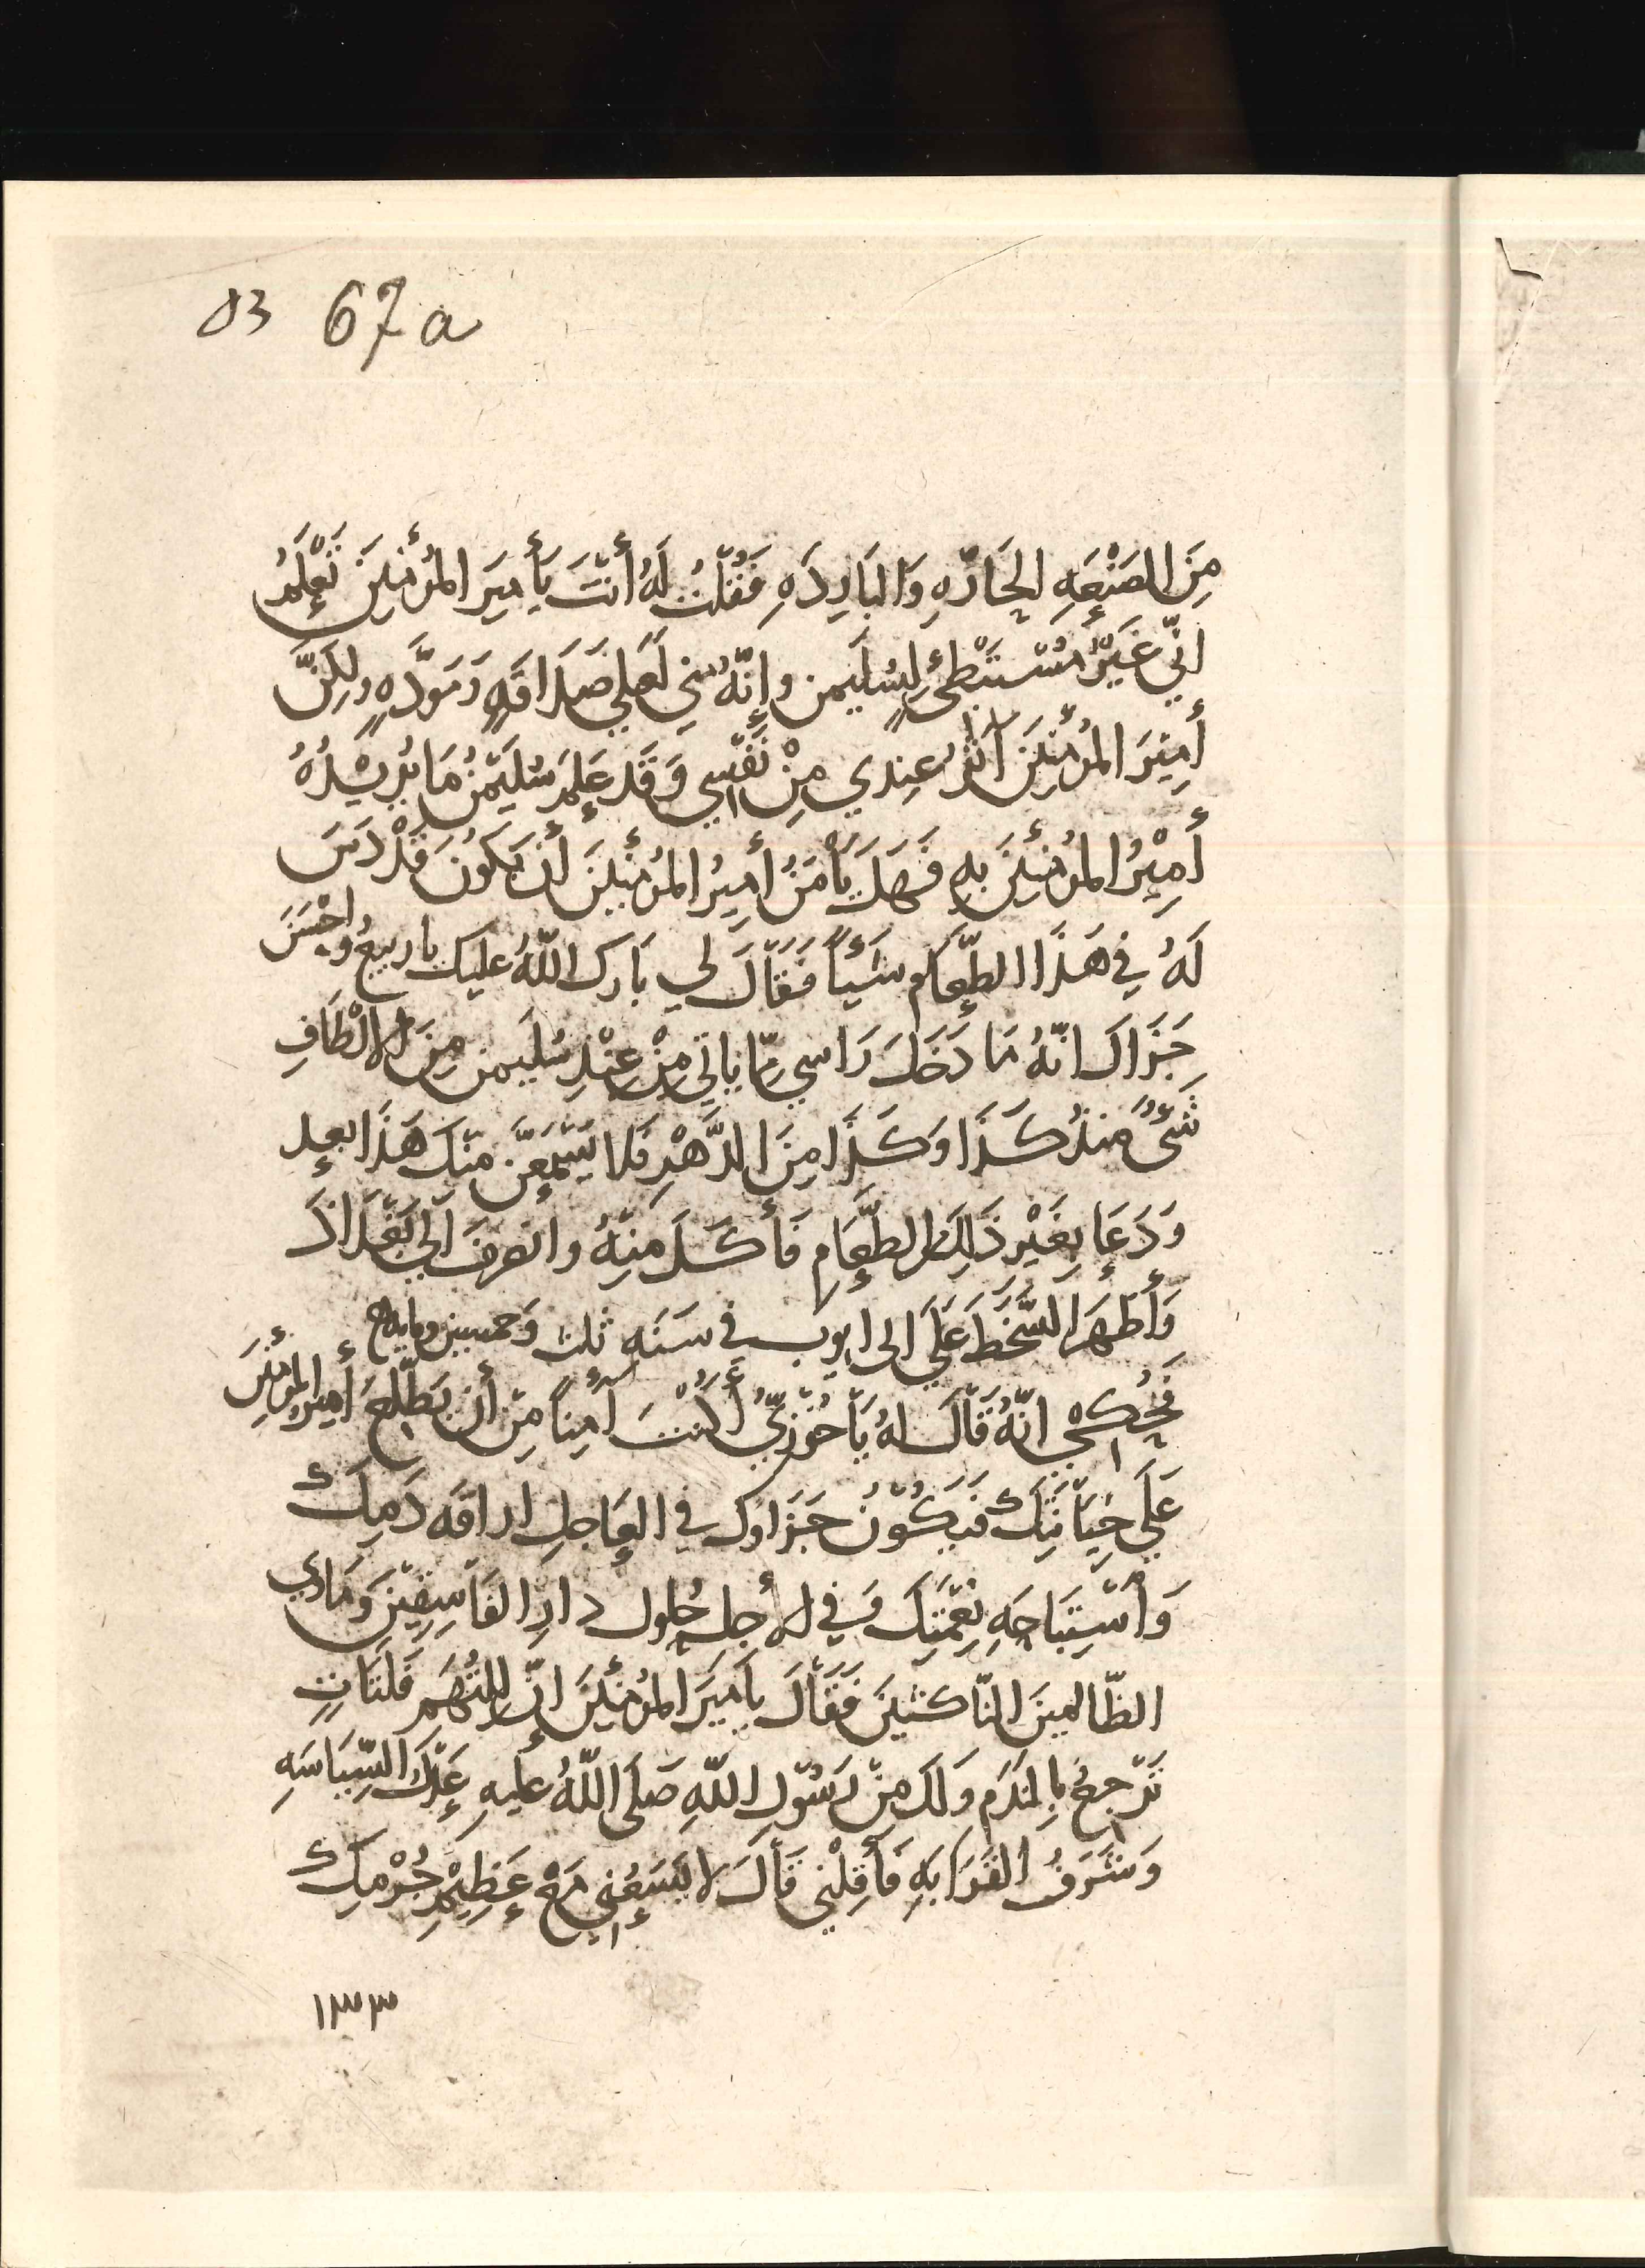 83 67a
مِنَ الصَنْعَهِ الحَارّهِ وَالبَارِدَهِ فَقُلْتُ لَهُ أَنْتَ يَأَمِيَر المُؤْمنِينَ تَعْلَمُ
انّي غَيْرُ مُسْتَبْطِئٍ لِسُلَيمن وإنّهُ مني لَعَلي صَدَاقَهٍ وَمَوَدَّهٍ ولكِنّ
أَمِيَر المُؤْمنِينَ آثَرُ عِندي مِنْ نَفْسِي وَقَد عَلِمَ سُلَيْمَنُ مَا يُرِيْدُهُ
أَمِيْرُ المُؤمِنينَ بهِ فَهَلَ يَأْمَنُ أَمِيرُ المُؤمنِينَ أَن يَكوُنَ قَدْ دَسَ
لَهُ في هَذَا الطّعَام شَيْأً فَقَالَ لي بَارَك اللّهُ عليك ياربيعُ واحْسَنَ
جَزَاكَ انّهُ مَا دَخَلَ رَاسي مِمّا ياتي مِنْ عِنْدِ سُليمن مِنَ الالْطَافِ
شَئٌ منذُ كَذَا وَكَذَا مِنَ الدَّهْرِ فَلا يَسْمَعَنّ مِنْكَ هَذَا بعد
وَدَعَا بِغَيْرِ ذَالِكَ الطَّعَامِ فَأَكَلَ مِنْهُ وانصرفَ الَي بَغْدَاذَ
وَأَظهَرَ السَّخَطَ عَلَي ابى ايوب في سَنَهِ ثلث وَخمسين ومايه
فحُكِيَ انّهُ قَالَ لهُ يَا خُوْزِيُّ أَكُنْتَ آمِناً مِنْ أَن يَطّلِعَ أَمِيُر المُؤمنِينَ
عَلَي خِيَانَتِكَ فَيَكُوْنُ جَزَاوك في العَاجِلِ اراقَه دَمِكَ
وَاسْتِبَاحَهِ نِعْمَتِكَ وَفي الأجِل حُلول دارِ الفَاسِقِيْنَ وَمَاوي
الظّالمينَ النّاكثينَ فَقَالَ يامِيَر المُؤمنِينَ انّ لِلتُهَمِ فَلَتَاتٍ
تَرْجِعُ بِالنَدَمِ وَلَك مِنْ رَسُوْلِ اللّهِ صَلَى اللّهُ عليهِ عَدْلُ السِّيَاسَهِ
وَشَرَفُ القَرَابَهِ فَأَقِلْني قَالَ لا يَسَعُني مَعْ عَظِيْمِ جُرْمِكَ
١٣٣